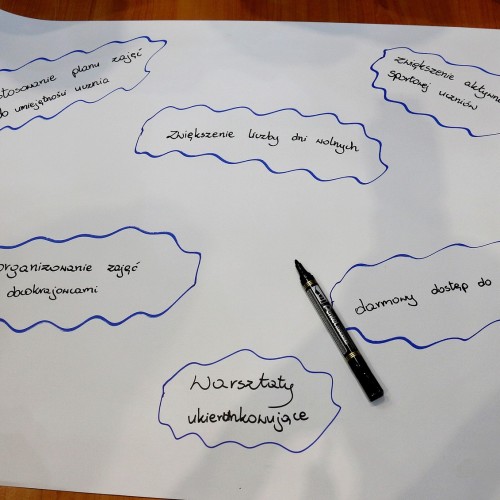 stosowanie planu zajęć
do umiejętności ucznia
Zwiększenie aktywn
sportowej uczniów
Zwiększenie liczby dni wolnych
organizowanie zajęć
obcokrajowcami
darmowy dostęp do
Warsztaty
ukierunkowujące